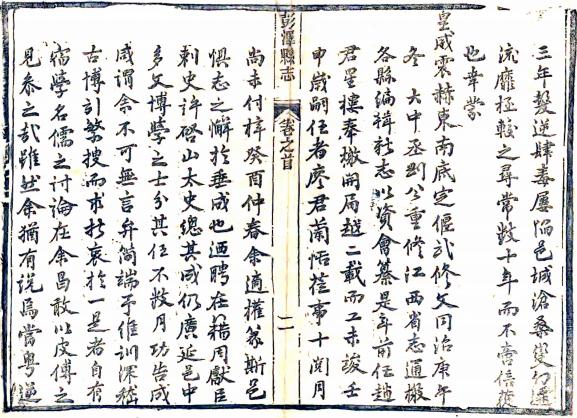 三年髮逆肆毒屢陷邑城滄桑變幻遷
流靡極較之尋常數十年而不啻倍蓰
也幸蒙
皇威震赫東南底定偃武修文同治庚午
冬 大中丞劉公重修江西省志通檄
各縣編輯新志以資會纂是年前任趙
君星樓奉檄開局越二載而工未竣壬
申歲嗣任者廖君蘭恬蒞事十閱月
彭澤縣志
卷之首
二
尚未付梓癸酉仲春余適權篆斯邑
懼志之懈於垂成也迺聘在籍周獻臣
刺史許啓山太史總其成仍廣延邑中
多文博學之士分其任不數月功告成
咸謂余不可無言弁簡端予維訓深稽
古博引繁搜而求折衷於一是者自有
宿學名儒之討論在余曷敢以皮傅之
見參之哉雖然余猶有說焉當粵逆